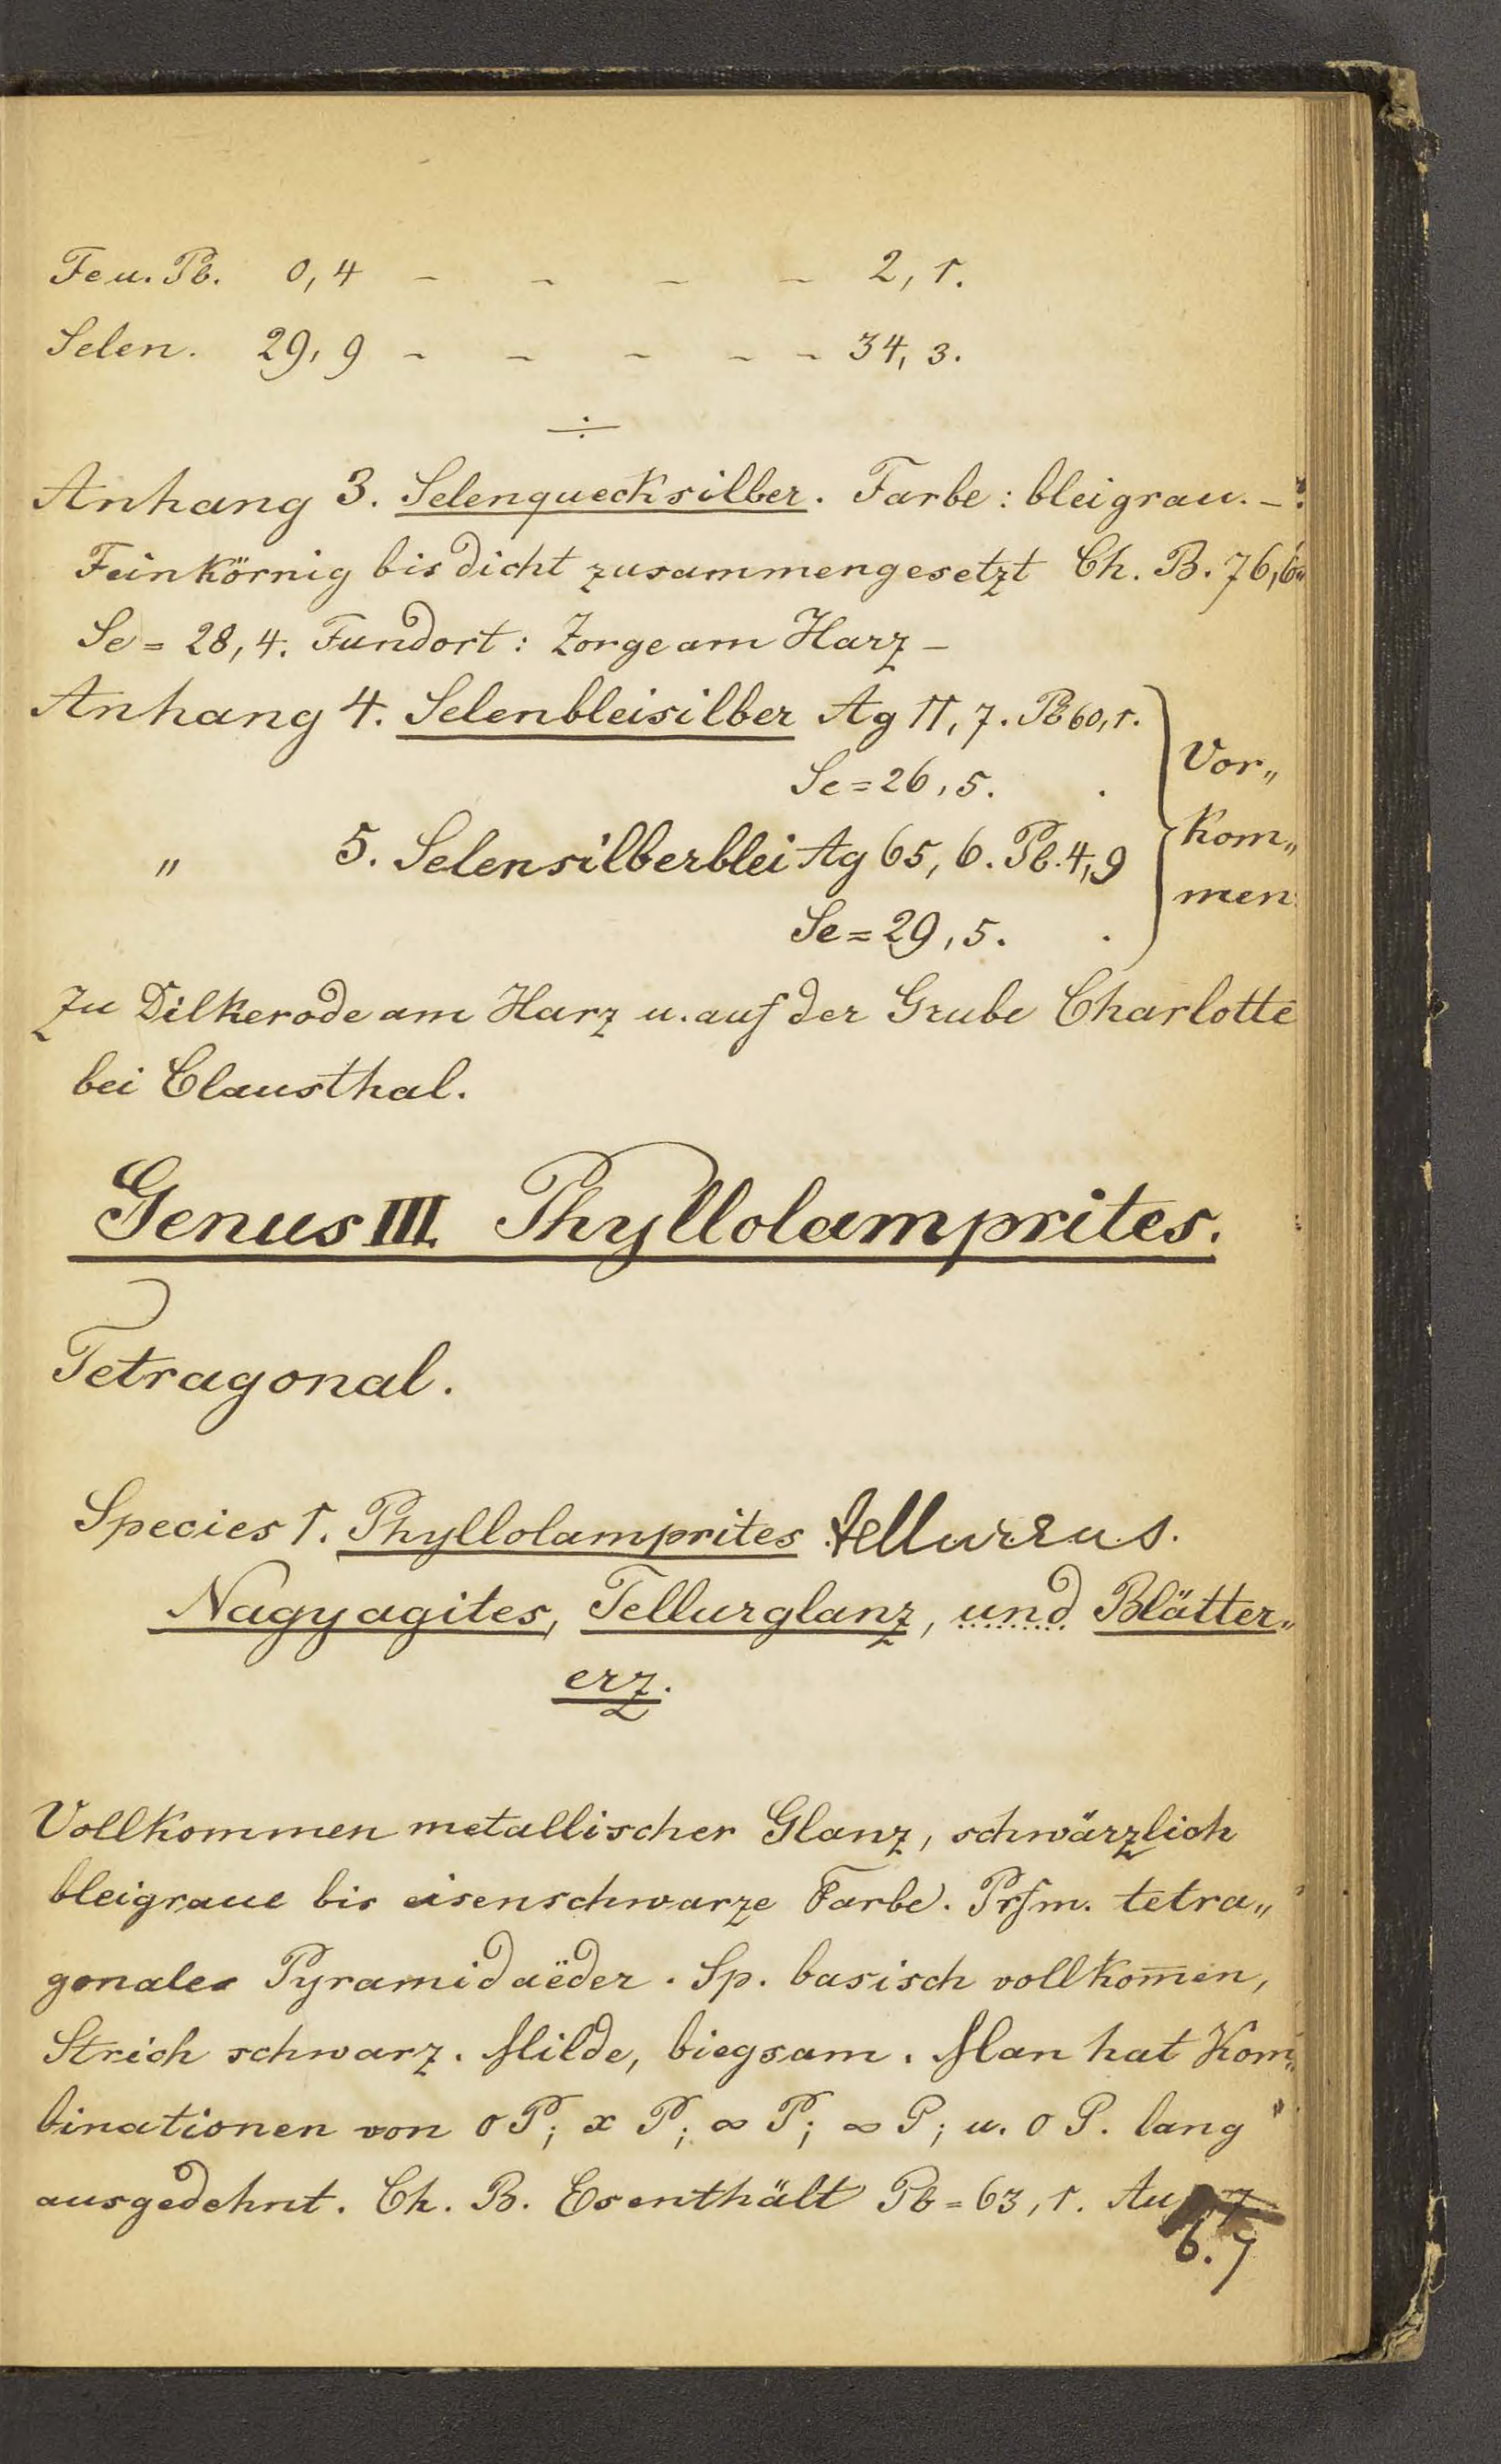 Fe u. Pb. 0,4 - - - - 2,1.
Selen. 29,9 - - - - - 34,3.
Anhang 3. Selenquecksilber. Farbe: bleigrau. -
Feinkörnig bis dicht zusammengesetzt Ch. B. 76,6
Se = 28,4. Fundort: Zorge am Harz -
Anhang 4. Selenbleisilber Ag 11,7. Pb 60,1.
Se = 26,5.
Vor„
„ 5. Selensilberblei Ag 65,6. Pb. 4,9
kom„
men
Se = 29,5.
Zu Dilkerode am Harz u. auf der Grube Charlotte
bei Clausthal.
Genus III. Phyllolamprites.
Tetragonal.
Species 1. Phyllolamprites tellureus.
Nagyagites, Tellurglanz, und Blätter„
erz.
Vollkommen metallischer Glanz, schwärzlich
bleigraue bis eisenschwarze Farbe. Prfm. tetra„
gonales Pyramidaëder. Sp. basisch vollkom̅en,
Strich schwarz. Milde, biegsam. Man hat Kom„
binationen von 0P; x P; ∞ P; ∞ P; u. 0 P. lang
ausgedehnt. Ch. B. Es enthält Pb = 63,1. Au
6.7